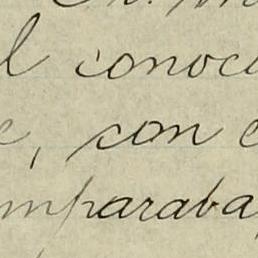 l conoc
e, con e
mparaba